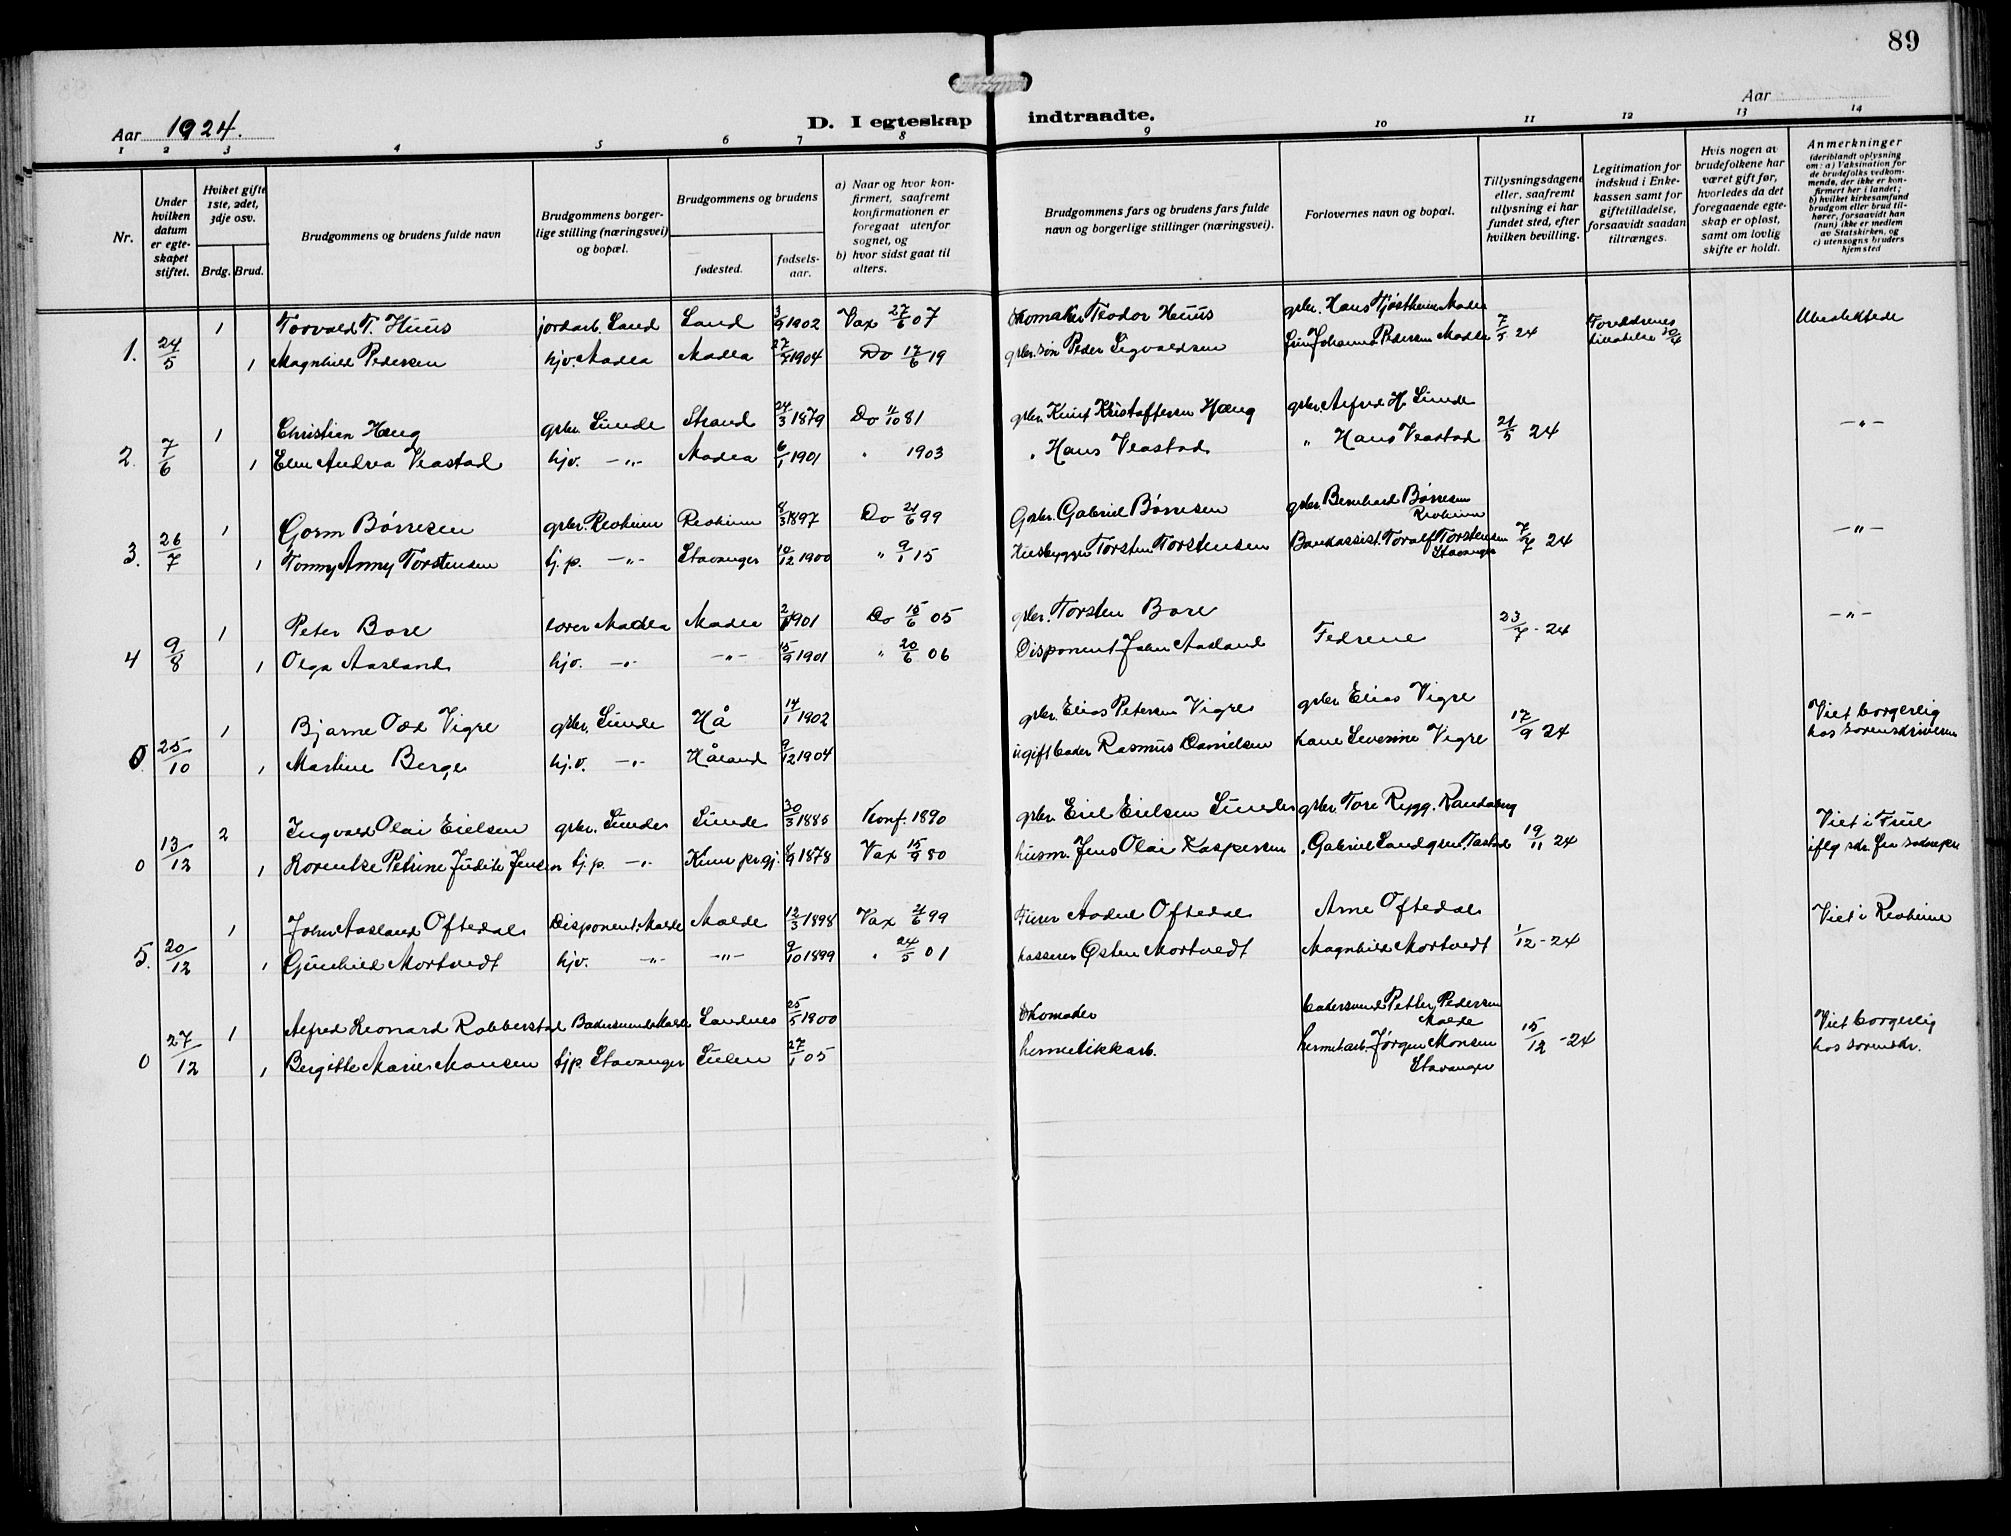 89
Aar 1924.
D. I egteskap indtraadte.
Aar
1 2 3 4 5 6 7 8 9 10 11 12 13 14
Nr.
Under hvilken datum er egteskapet stiftet.
Hviket gifte 1ste, 2det, 3dje osv.
Brdg. Brud.
Brudgommens og brudens fulde navn
Brudgommens borgerlige stilling (næringsvei) og bopæl.
Brudgommens og brudens
fødested.
fødselsaar.
a) Naar og hvor konfirmert, saafremt konfirmationen er foregaat utenfor sognet, og
b) hvor sidst gaat til alters.
Brudgommens fars og brudens fars fulde navn og borgerlige stillinger (næringsvei).
Forlovernes navn og bopæl.
Tillysningsdagene eller, saafremt tillysning ei har fundet sted, efter hvilken bevilling.
Legitimation for indskud i Enkekassen samt for giftetilladelse, forsaavidt saadan tiltrænges.
Hvis nogen av brudefolkene har været gift før, hvorledes da det foregaaende egteskap er opløst, samt om lovlig skifte er holdt.
Anmerkninger
(deriblandt oplysning om: a) Vaksination for de brudefolks vedkommende, der ikke er konfirmert her i landet; b) hvilket kirkesamfund brudgom eller brud tilhører, forsaavidt han (hun) ikke er medlem av Statskirken, og c) utensogns bruders hjemsted
1 Torvald T. Huus jordarb. Sand Sand 3/9 1902 Vax 27/6 07 Skomaker Teodor Huus grbr. Hans Tjøstheim Madla Forældrenes Ubeslektede
1. 24/5 1 Magnhild Pedersen hjv. Madla Madla 27/7 1904 Do 17/6 19 grbr. søn Peder Sigvaldsen Johanna Pedersen Madla 7/5 24 tilladelse
1 Christian Haug grbr. Sunde Strand 24/3 1879 Do 11/10 81 grbr. Knut Kristoffersen Haug grbr. Alfred H. Sunde
2. 7/6 1 Elen Andrea Veastad hjv. -"- Madla 6/1 1901 " 1903 " Hans Veastad " Hans Veastad 21/5 24 -"-
1 Gorm Børresen grbr. Revheim Revheim 8/3 1897 Do 21/6 99 Grbr. Gabriel Børresen grbr. Bernhard Børresen Revheim
3. 26/7 1 Tommy Anny Torstensen tj.p. -"- Stavanger 10/12 1900 " 9/1 15 Husbygger Torsten Torstensen Bankassist. Toralf Torstensen Stavanger 7/7 24 -"-
1 Peter Bore lærer Madla Madla 1901 Do 15/6 05 grbr. Torsten Bore
4 9/8 1 Olga Aasland hjv. -"- -"- 15/9 1901 " 20/6 06 Disponent John Aasland Fedrene 23/7 - 24 -"-
1 Bjarne Odd Vigre grbr. Sunde Hå 14/1 1902 grbr. Elias Petersen Vigre grbr. Elias Vigre Viet borgerlig
0 25/10 1 Martine Berge hj.v. -"- Håland 9/12 1904 ugift bader Rasmus Danielsen kone Severine Vigre 17/9 24 hos sorenskriveren
2 Ingvald Olai Eielsen grbr. Sunde Sunde 30/3 1885 Konf. 1890 grbr. Eiel Eielsen Sunde grbr. Tore Rygg. Randaberg Viet i
0 13/12 1 Lorentse Petrine Judite Jensen tj.p. -"- 8/9 1878 Vax 15/9 80 husm. Jens Olai Kaspersen " Gabriel Sandgren, Tasta 19/11 24
1 John Aasland Oftedal Disponent, Malde Malde 12/3 1898 Vax 21/6 99 Aadel Oftedal Arne Oftedal Viet i Revheim
5. 20/12 1 Gunhild Mortvedt hjv. -"- -"- 9/10 1899 " 24/5 01 kasserer Østen Mortvedt Magnhild Mortvedt 1/12 - 24
1 Alfred Leonard Robberstad Malde Sandnes 25/5 1900 Skomader Petter Pedersen Malde Viet borgerlig
0 27/12 1 Bergitte Marie Monsen tjp. Stavanger 27/1 05 hermetikkarb. hermet.arb. Jørgen Monsen Stavanger 15/12 - 24 hos sorenskr.